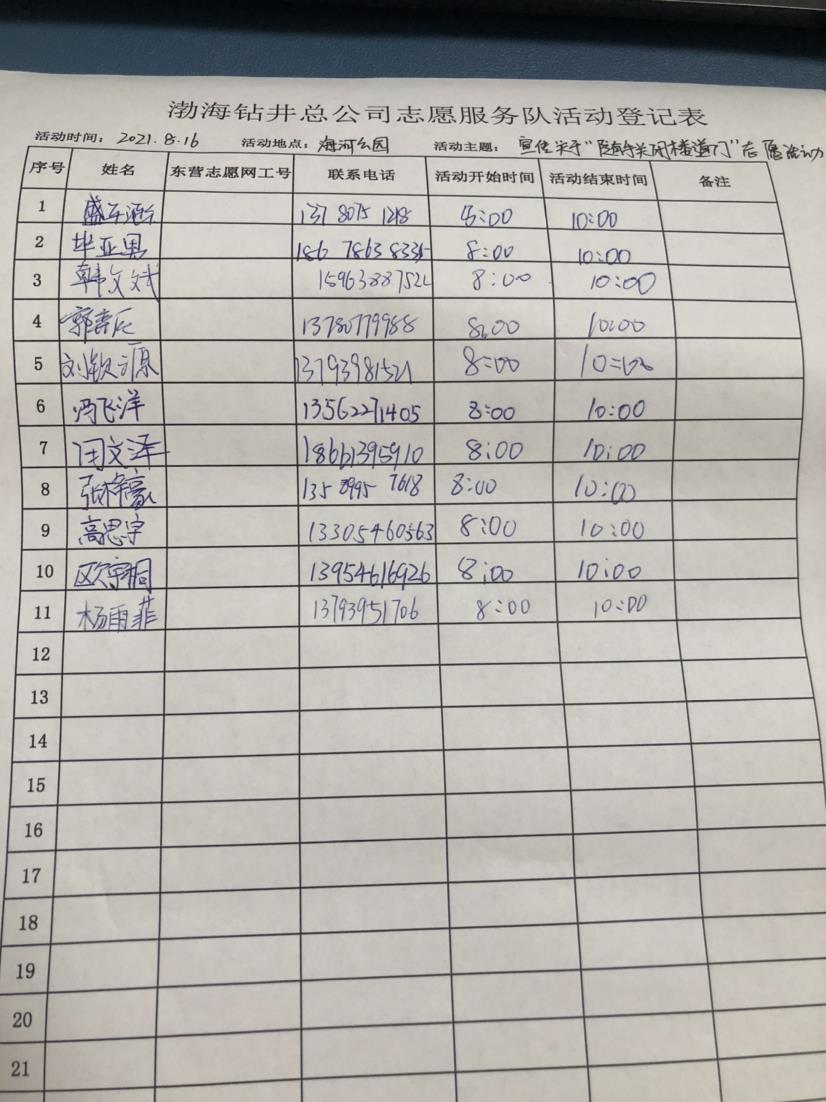 渤海钻井总公司志愿服务队活动登记表
活动时间：2021.8.16 活动地点：海河公园 活动主题：宣传关于"随手关闭楼道门"志愿活动
序号 姓名 东营志愿网工号 联系电话 活动开始时间 活动结束时间 备注
1 137 8075 1218 8:00 10:00
2 毕亚男 186 7863 8335 8:00 10:00
3 韩文斌 1596388752 8:00 10:00
4 13780779988 8:00 10:00
5 刘钦源 13793981521 8=00 10=00
6 冯飞洋 13562271405 8:00 10:00
7 闫文泽 18661395910 8:00 10:00
8 张梓豪 135 8995 7618 8:00 10:00
9 高思宇 13305460563 8:00 10:00
10 欧宇桐 13954616926 8:00 10:00
11 杨雨菲 13793951706 8:00 10:00
12
13
14
15
16
17
18
19
20
21